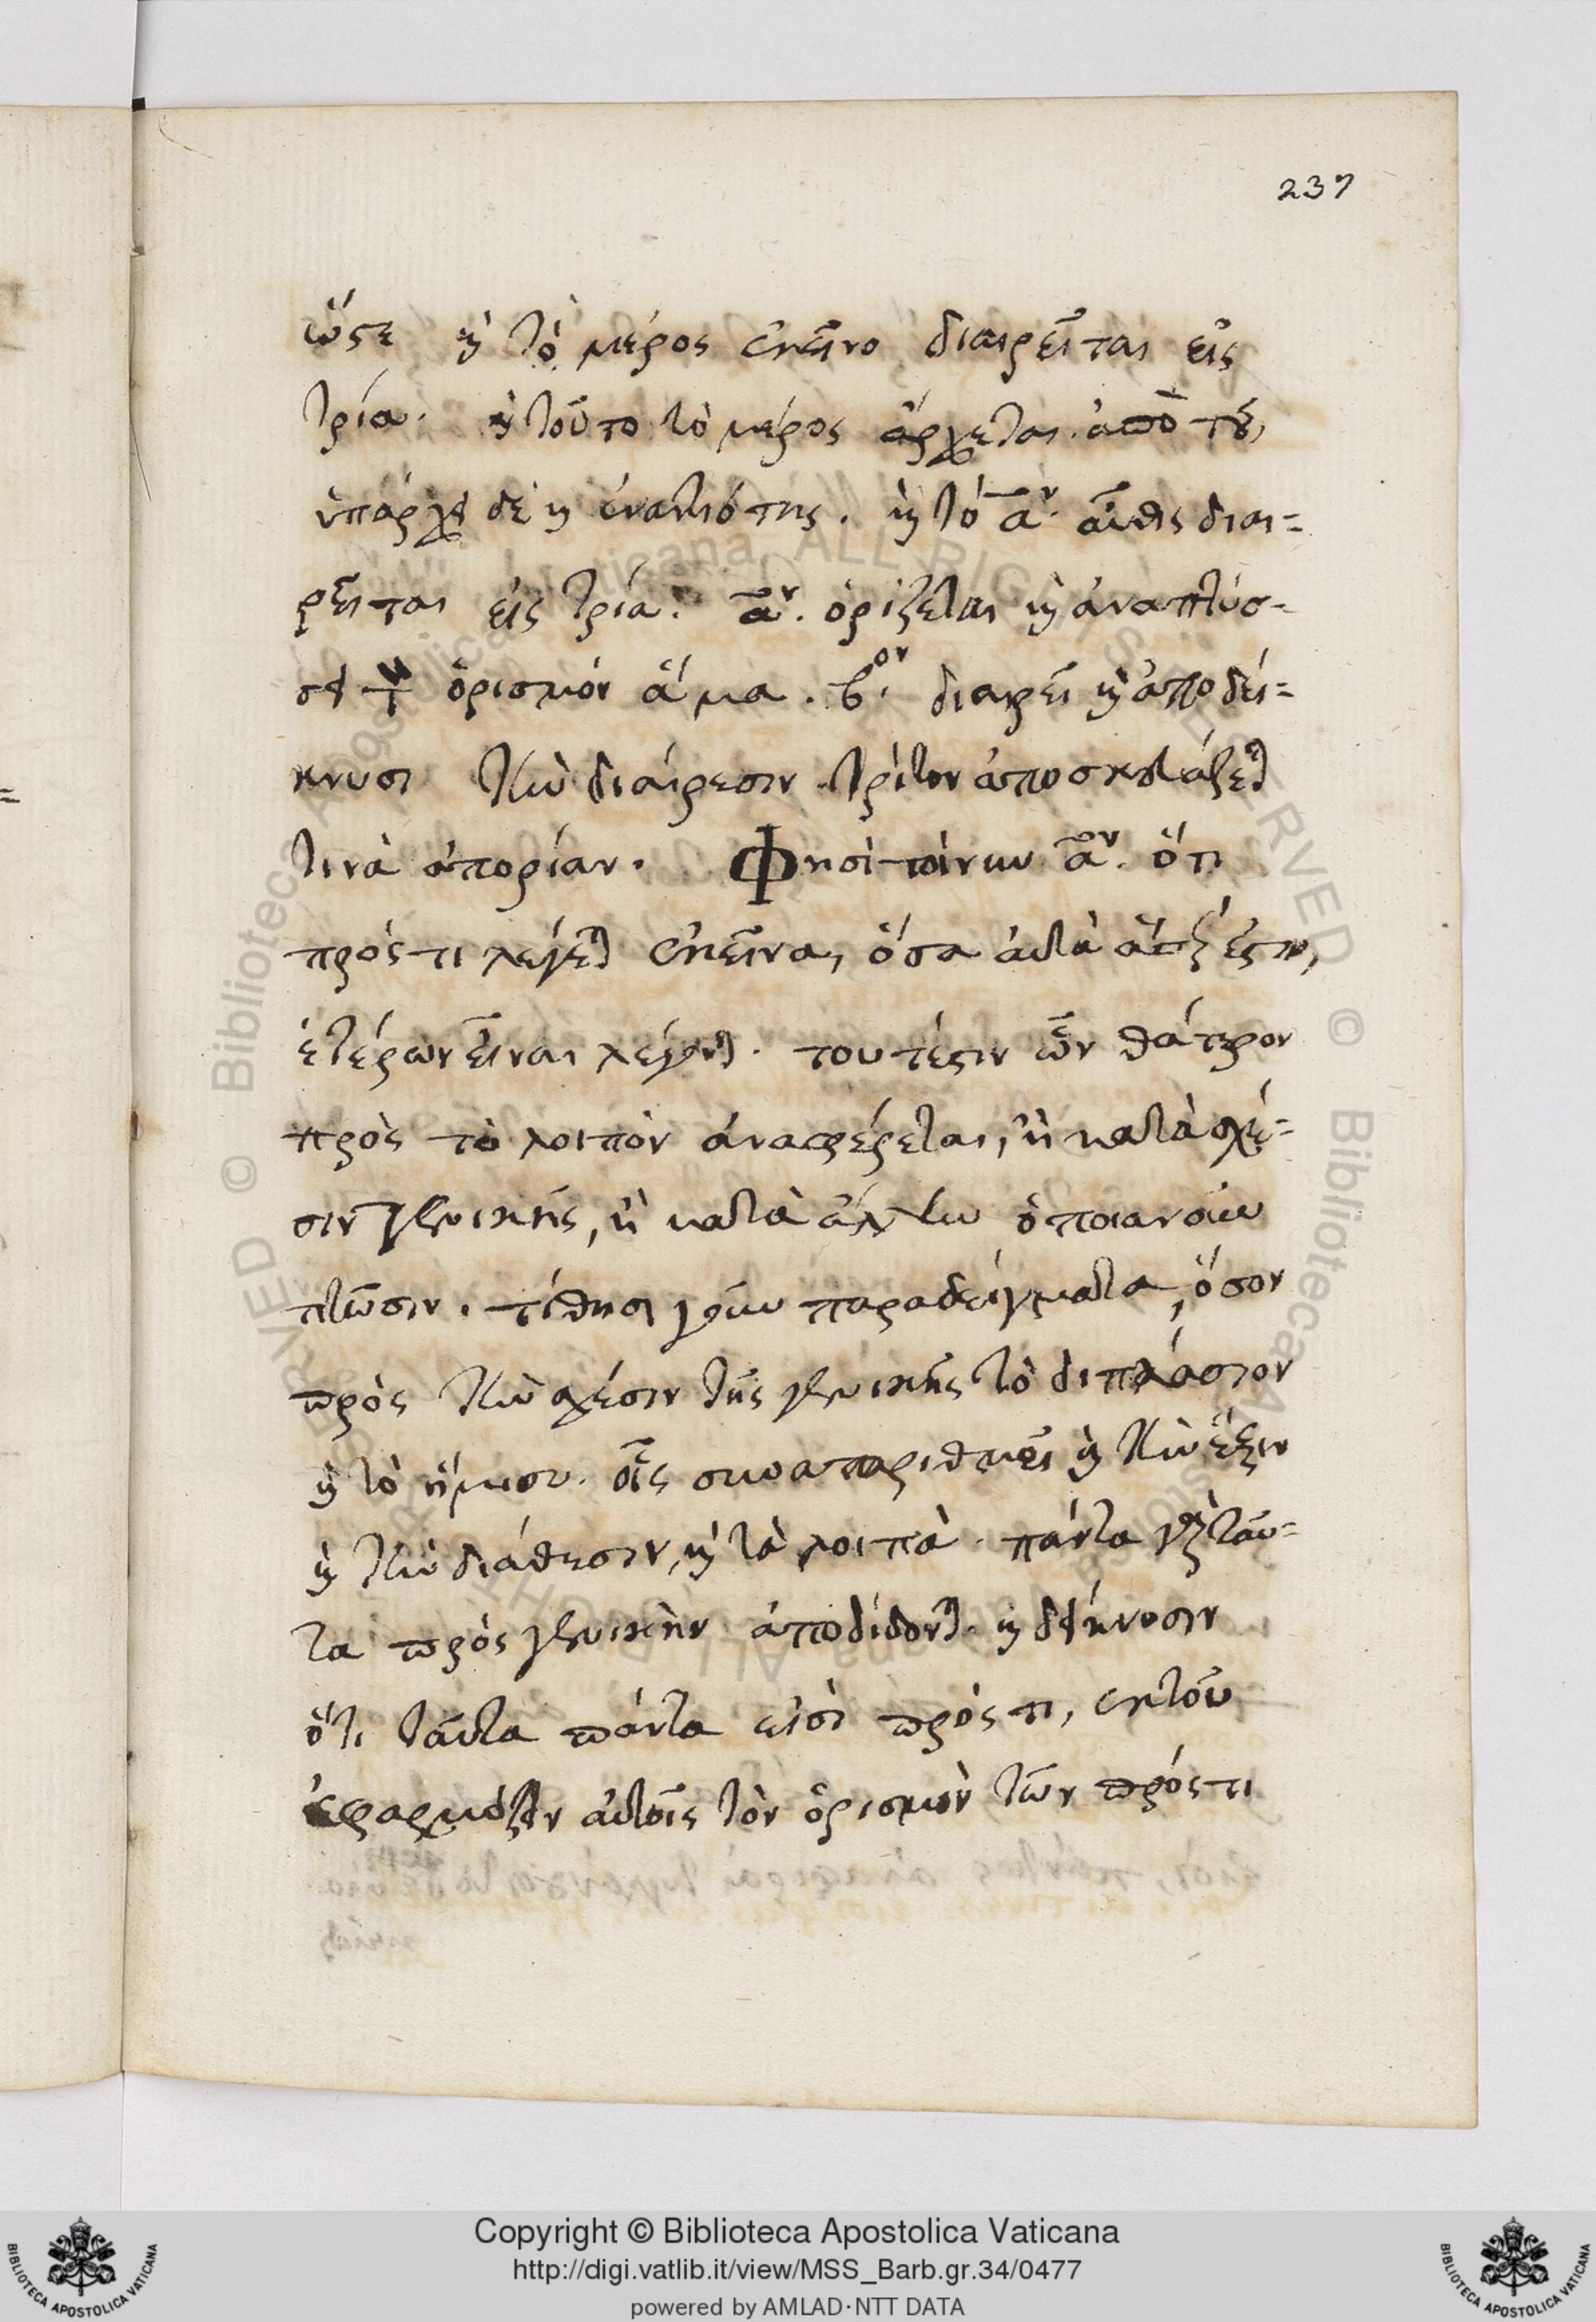 237
ὥστε καὶ τὸ μέρος ἐκεῖνο διαιρεῖται εἰς
τρία. καὶ τοῦτο τὸ μέρος ἄρχεται ἀπὸ τοῦ,
ὑπάρχει δὲ καὶ ἐναντιότης. καὶ τὸ αον. αὖθις διαι=
ρεῖται εἰς τρία. αον. ὁρίζεται καὶ ἀναπτύσ-
σει τὸν ὁρισμὸν ἅμα. βον. διαιρεῖ καὶ ἀποδεί=
κνυσι τὴν διαίρεσιν. τρίτον ἀποσκευάζεται
τινὰ ἀπορίαν. Φησὶ τοίνυν αον. ὅτι
πρός τι λέγεται ἐκεῖνα, ὅσα αὐτὰ ἅπερ ἐστιν,
ἑτέρων εἶναι λέγονται. τουτέστιν ὧν θάτερον
πρὸς τὸ λοιπὸν ἀναφέρεται, ἢ κατὰ σχέ=
σιν γενικῆς, ἢ κατὰ ἄλλην ὁποιανοῦν
πτῶσιν. τίθησι γοῦν παραδείγματα, ὅσον
πρὸς τὴν σχέσιν τῆς γενικῆς τὸ διπλάσιον
καὶ τὸ ἥμισυ. οἷς συναπαριθμεῖ καὶ τὴν ἕξιν
καὶ τὴν διάθεσιν, καὶ τὰ λοιπὰ. πάντα γὰρ ταῦ=
τα πρὸς γενικὴν ἀποδίδονται. καὶ δείκνυσιν
ὅτι ταῦτα πάντα εἰσὶ πρός τι, ἐκ τοῦ
ἐφαρμόζειν αὐτοῖς τὸν ὁρισμὸν τῶν πρός τι
Copyright © Biblioteca Apostolica Vaticana
http://digi.vatlib.it/view/MSS_Barb.gr.34/0477
powered by AMLAD·NTT DATA